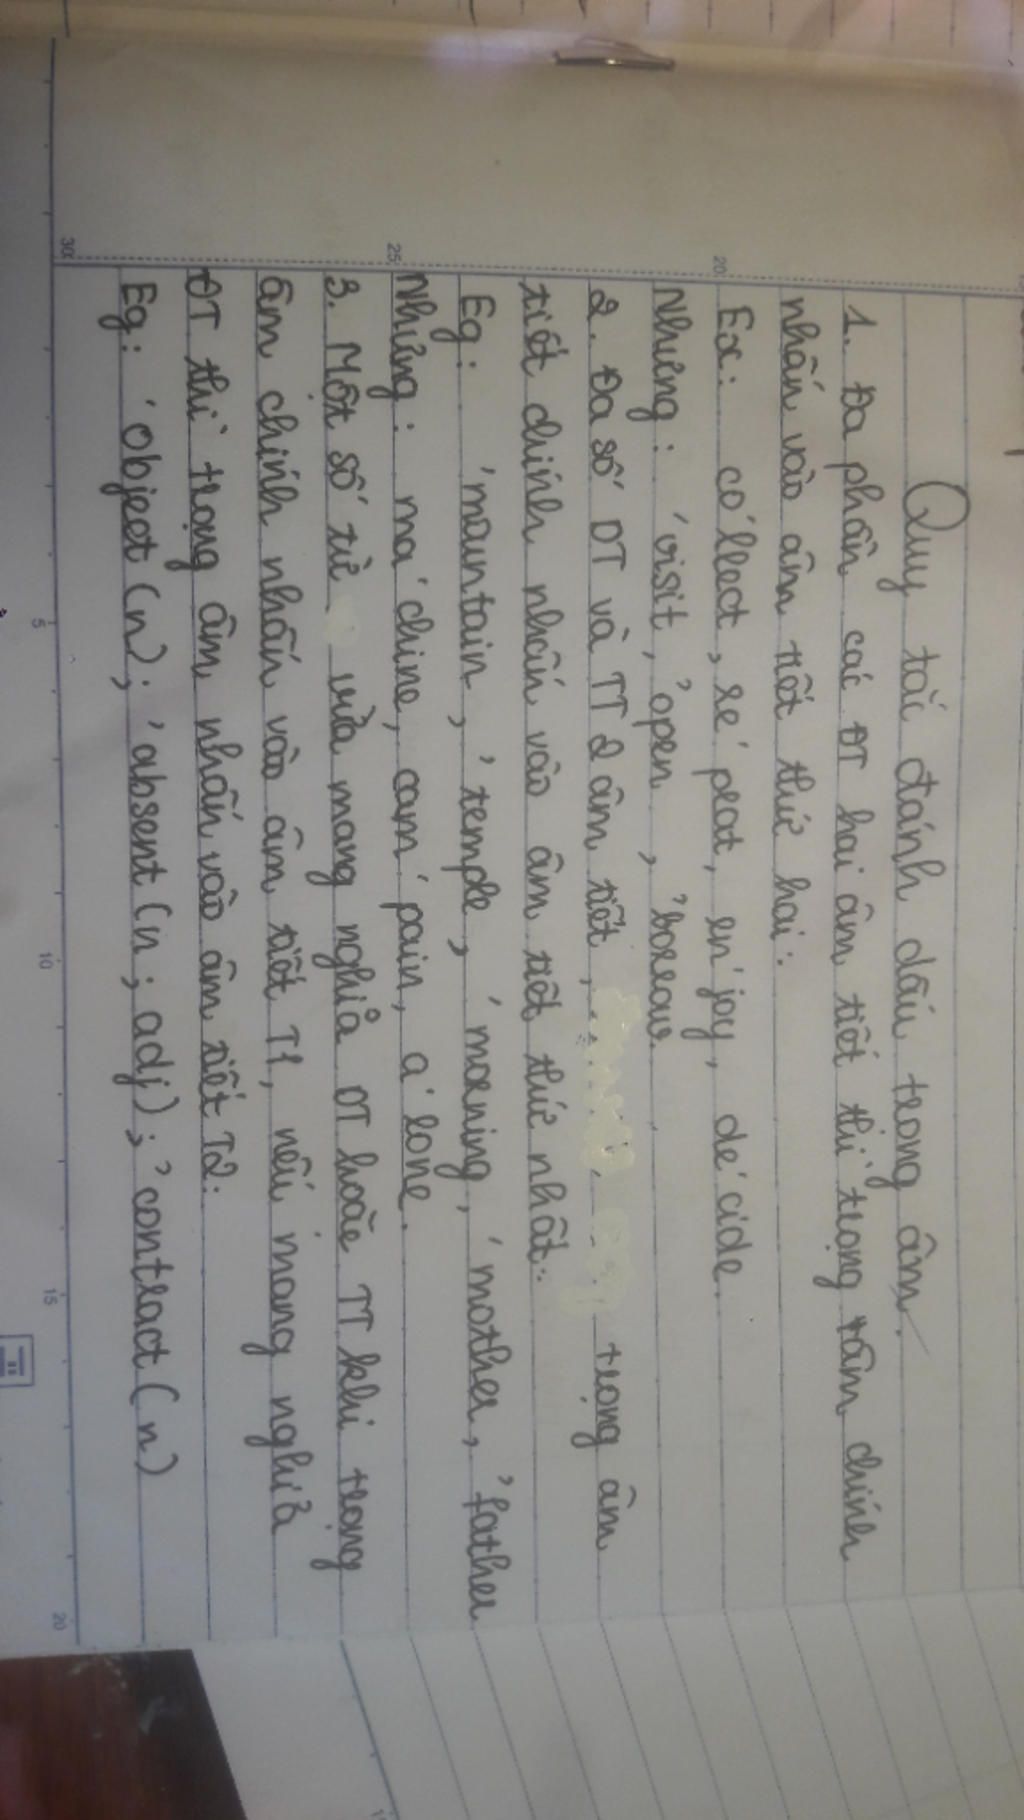 Quy tắc đánh dấu trọng âm.
1. Đa phần các ĐT hai âm tiết thì trọng tâm chính
nhấn vào âm tiết thứ hai:
Ex: co'llect, re'peat, en'joy, de'cide.
Nhưng: 'visit, 'open, 'borrow.
2. Đa số DT và TT 2 âm tiết, trọng âm
tiết chính nhấn vào âm tiết thứ nhất:
Eg: 'mountain, 'temple, 'morning, 'mother, 'father
Nhưng: ma'chine, cam'pain, a'lone.
3. Một số từ vừa mang nghĩa DT hoặc TT khi trọng
âm chính nhấn vào âm tiết T1, nếu mang nghĩa
ĐT thì trọng âm nhấn vào âm tiết T2:
Eg: 'object (n); 'absent (n; adj); 'contract (n)
20
25
30
5
10
15
20